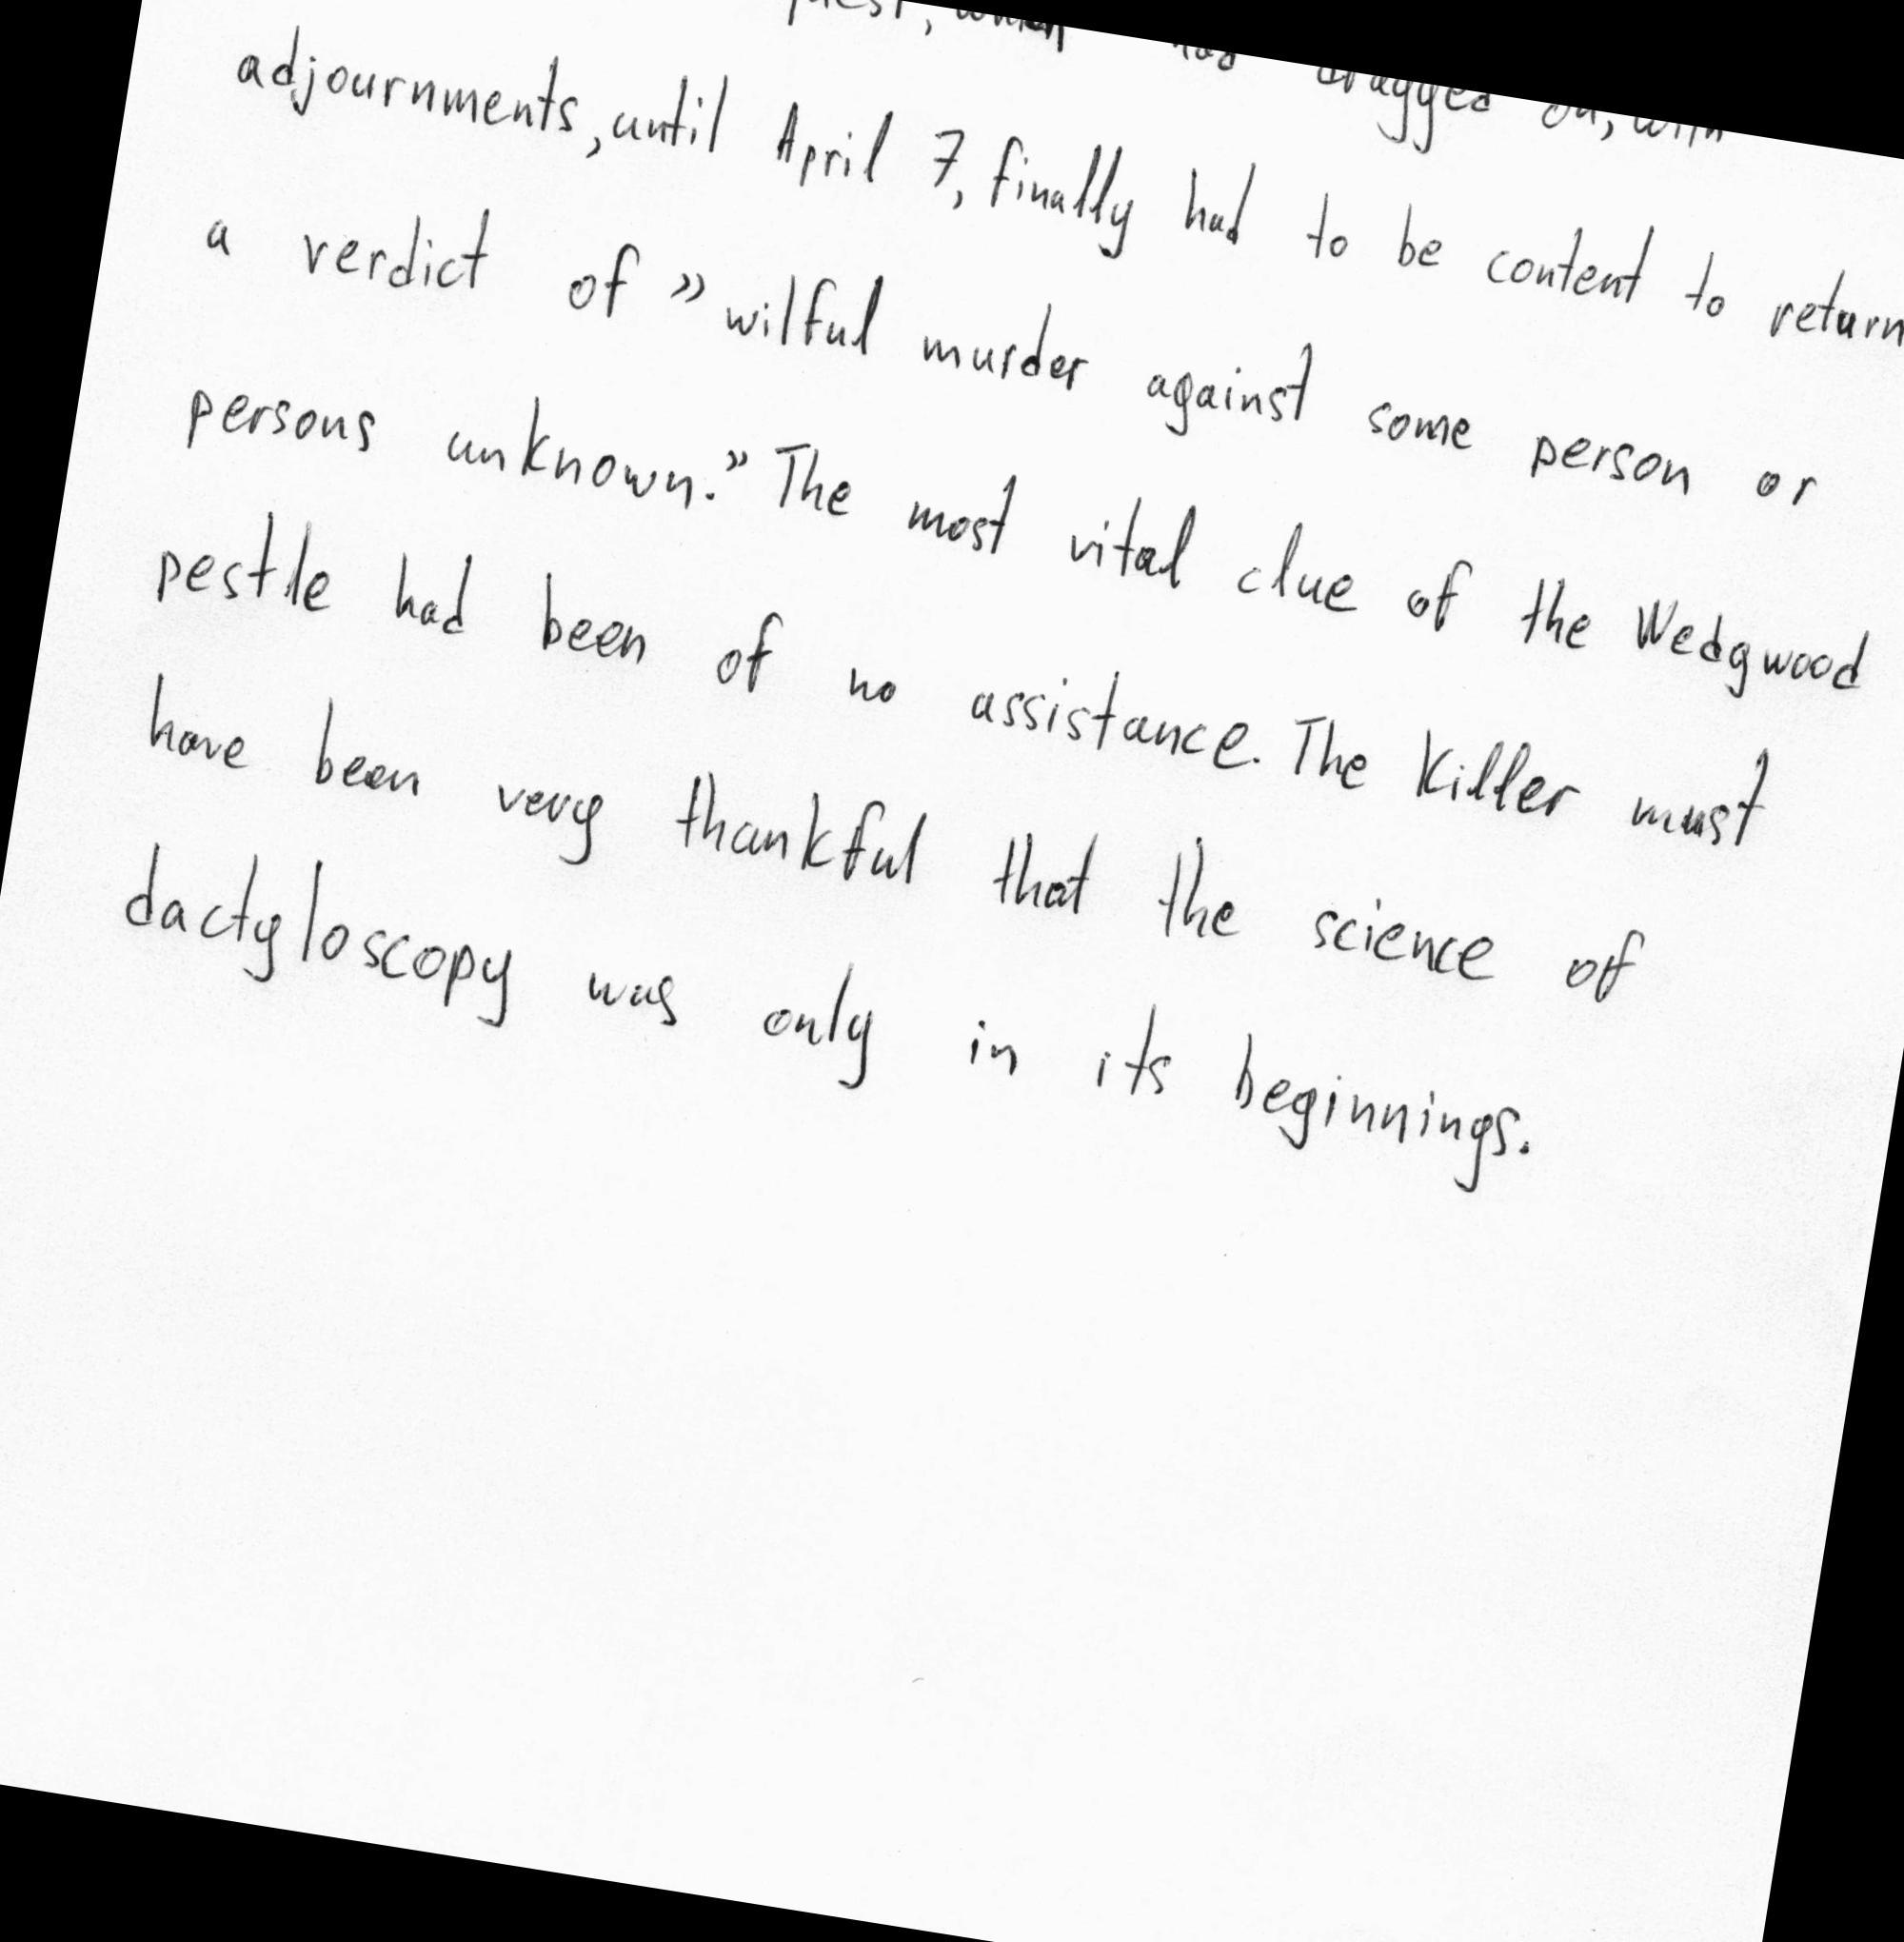 had dragged on, with
adjournments, until April 7, finally had to be content to return
a verdict of »wilful murder against some person or
persons unknown.» The most vital clue of the Wedgwood
pestle had been of no assistance. The Killer must
have been very thankful that the science of
dactyloscopy was only in its beginnings.